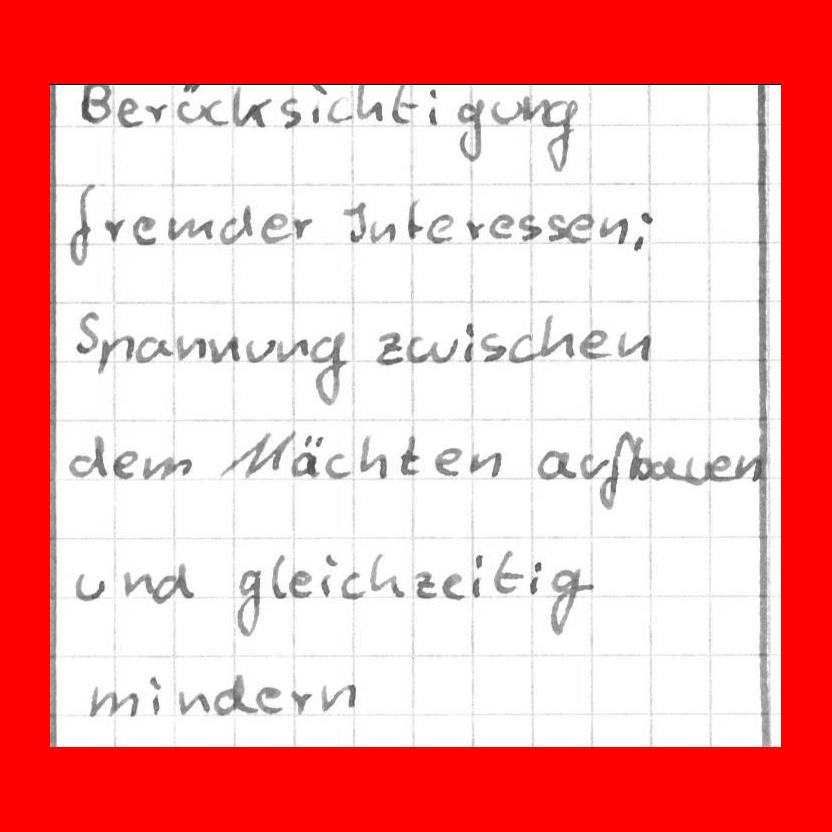 Berücksichtigung
fremder Interessen;
Spannung zwischen
dem Mächten aufbauen
und gleichzeitig
mindern